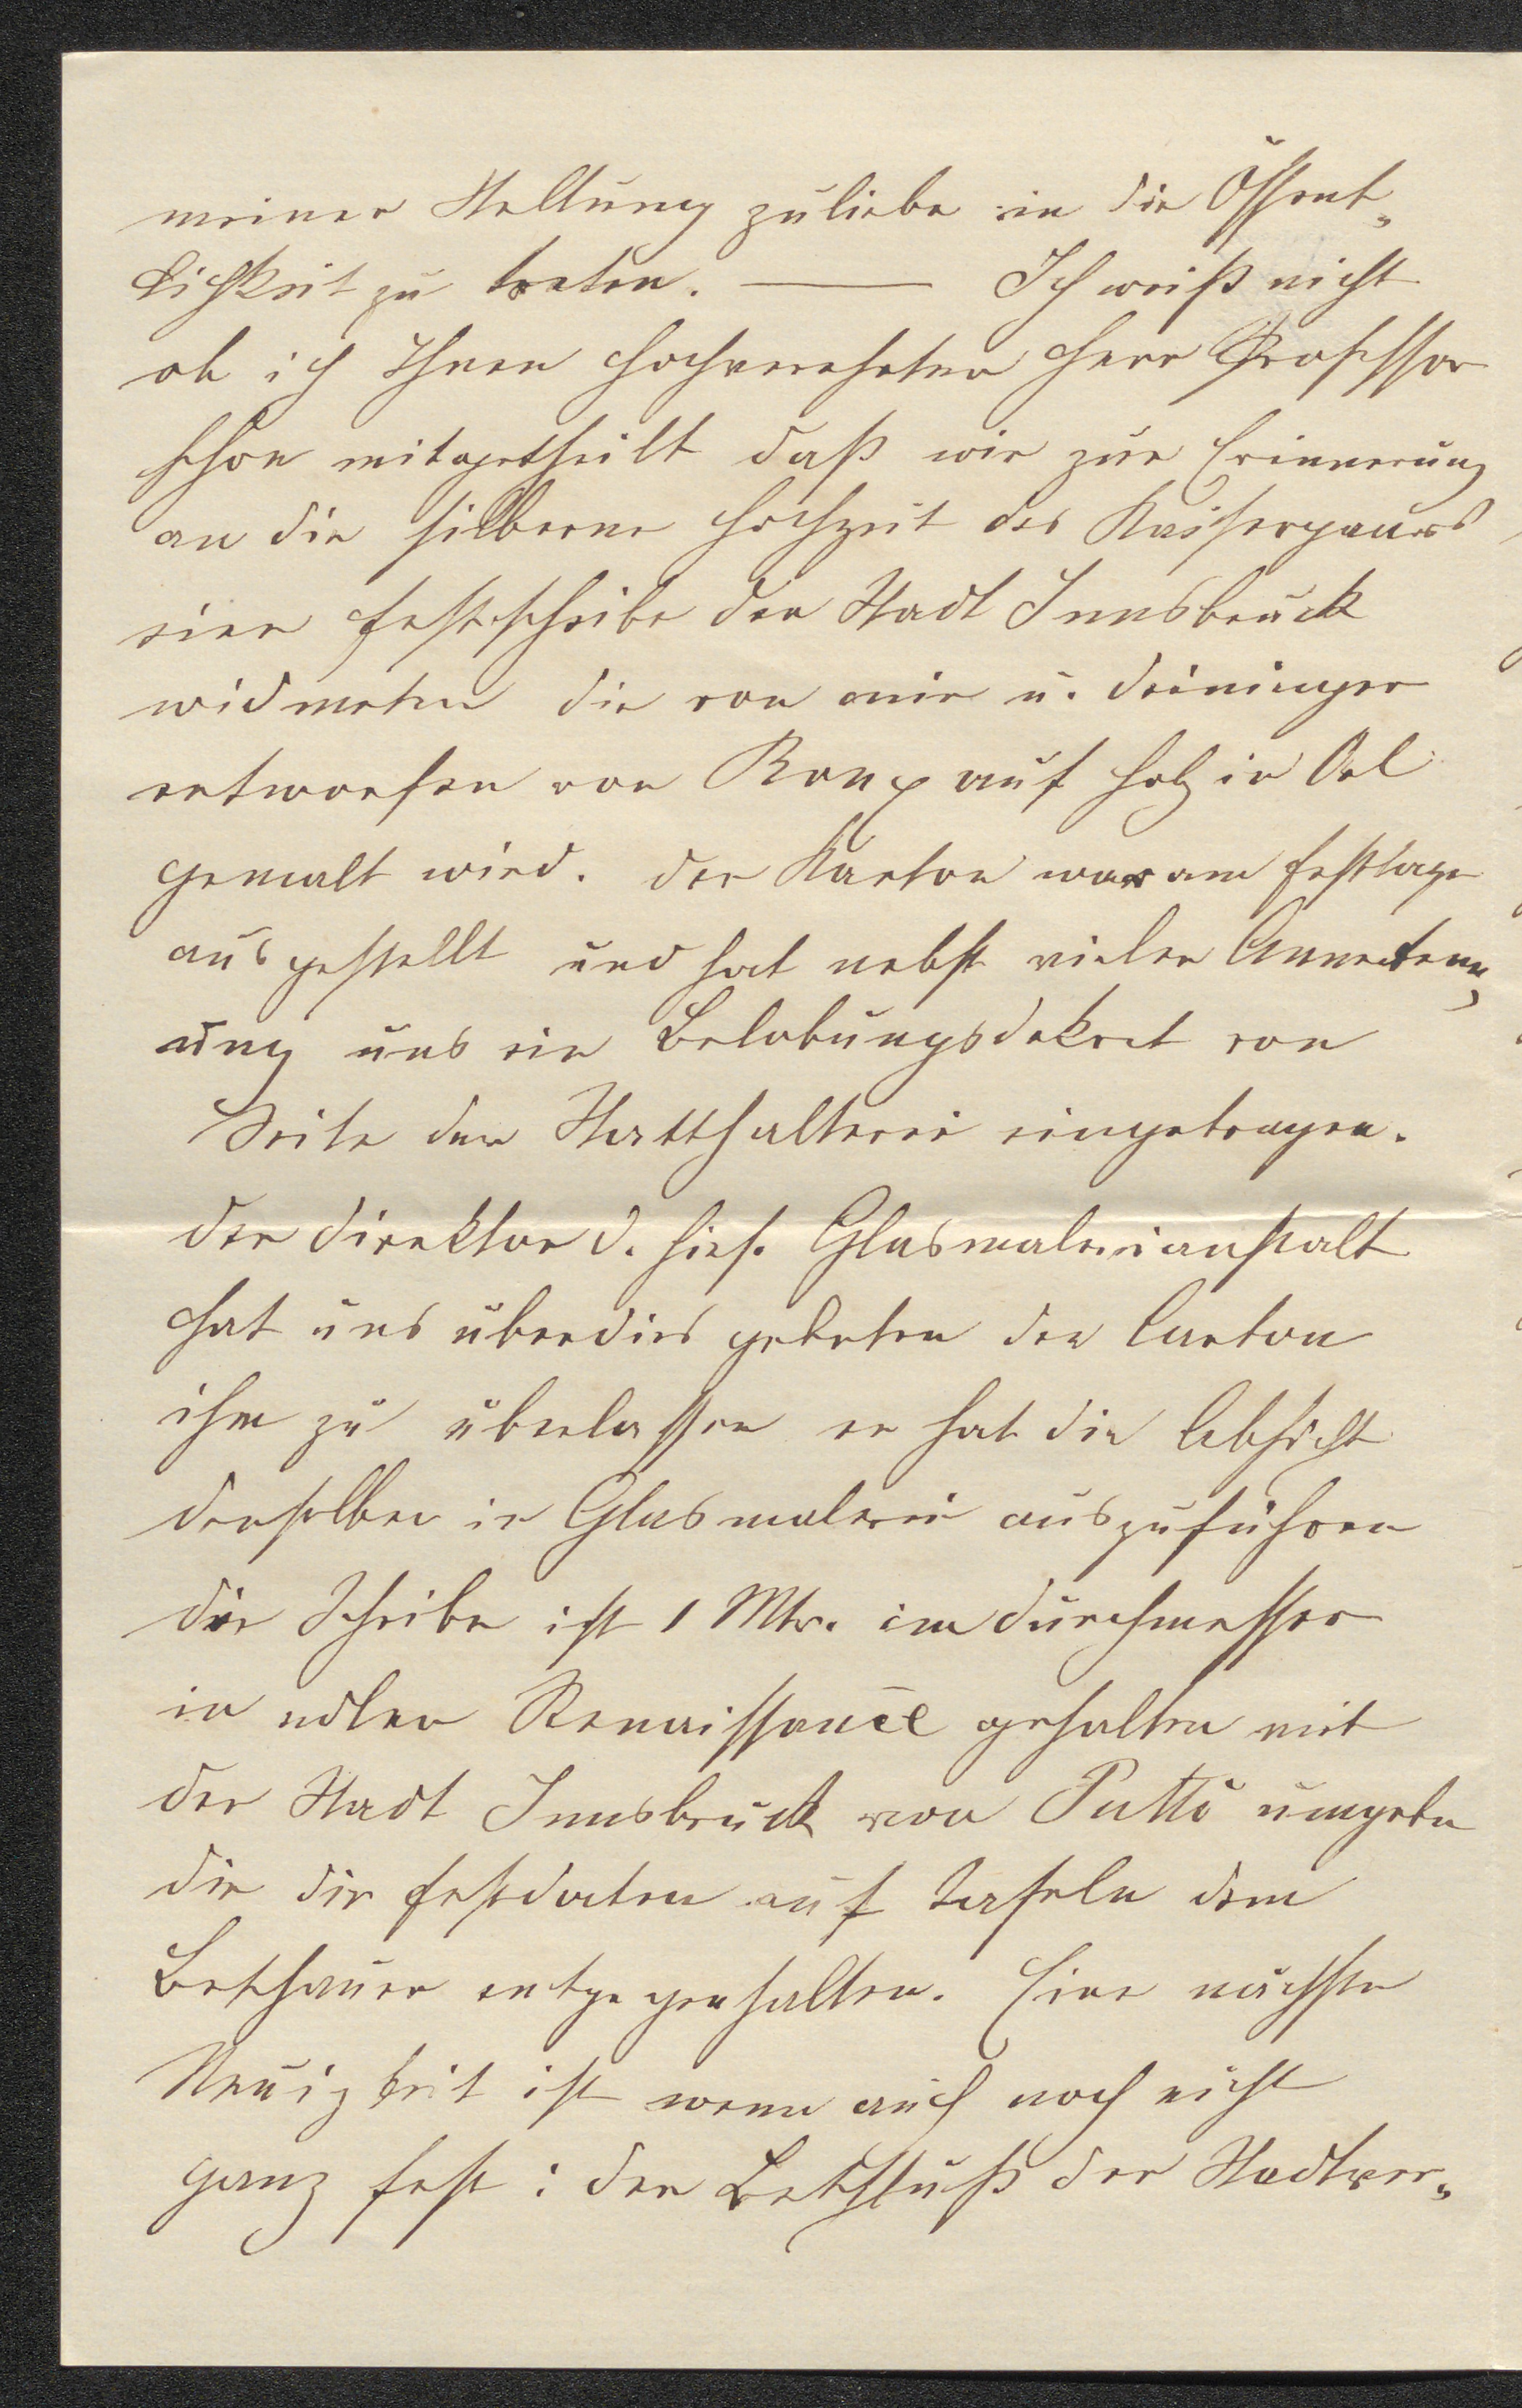 meiner Stellung zuliebe in die Öffent„
lichkeit zu treten. — Ich weiß nicht
ob ich Ihnen hochverehrter Herr Professor
schon mitgetheilt daß wir zur Erinnerung
an die silberne Hochzeit des Kaiserpaares
eine Festscheibe der Stadt Innsbruck
widmeten die von mir u. Deininger
entworfen von auf Holz in Oel
gemalt wird. Der Karton war am Festtage
ausgestellt und hat nebst vieler Anerkenn„
ung uns ein Belobungsdekret von
Seite der Statthalterei eingetragen.
Der Direktor d. hies. Glasmalereianstalt
hat uns überdies gebeten den Carton
ihm zu überlassen er hat die Absicht
denselben in Glasmalerei auszuführen
die Scheibe ist 1 Mtr. im Durchmesser
in edler Renaissance gehalten mit
der Stadt Innsbruck von Putti umgeben
die die Festdaten auf Tafeln dem
Beschauer entgegenhalten. Eine nächste
Neuigkeit ist wenn auch noch nicht
ganz fest: der Beschluß der Stadtver„